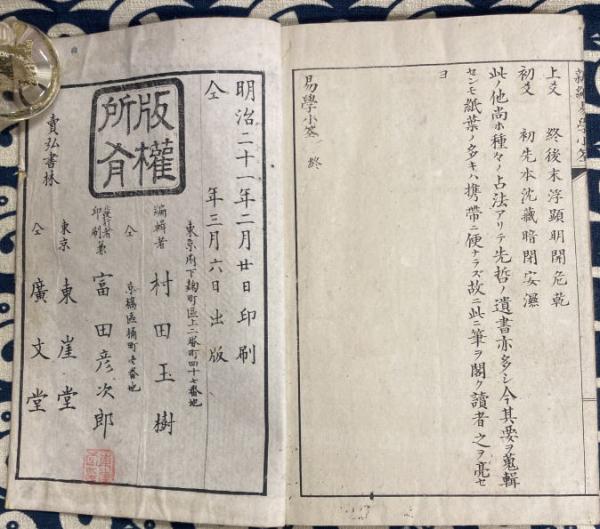 上爻　終後末浮顕明開危乾
初爻　初先本沈蔵暗閉安濕
此ノ他尚ホ種々ノ占法アリテ先哲ノ遺書亦多シ今其要ヲ蒐輯
センモ紙葉ノ多キハ携帯ニ便ナラズ故ニ此ニ筆ヲ閣ク讀者之ヲ亮セ
ヨ
易學小筌　終
明治二十一年二月廿日印刷
仝　年三月六日出版
東京府下麹町區上二番町四十七番地
編輯者　村田玉樹
仝　京橋區桶町七番地
印刷兼　富田彦次郎
版權所有
賣弘書林
東京　東崖堂
仝　廣文堂